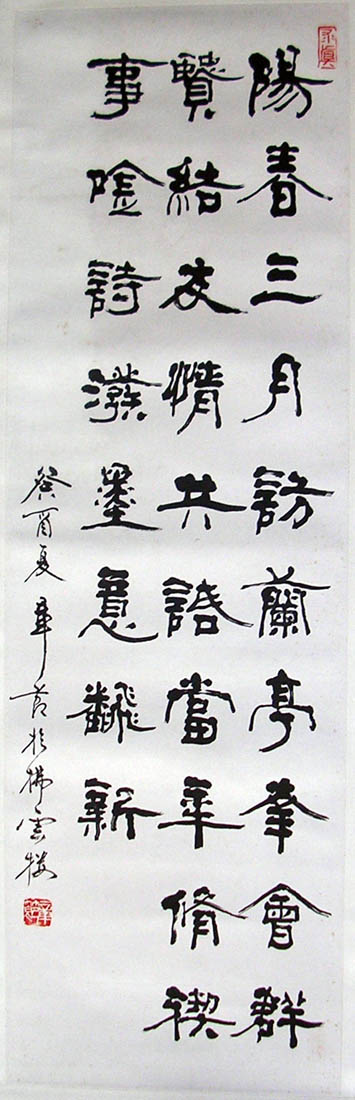 陽春三月訪蘭亭幸會群
賢結友情共話當年脩禊
事唫詩潑墨意飜新
癸酉夏章於拂雲楼